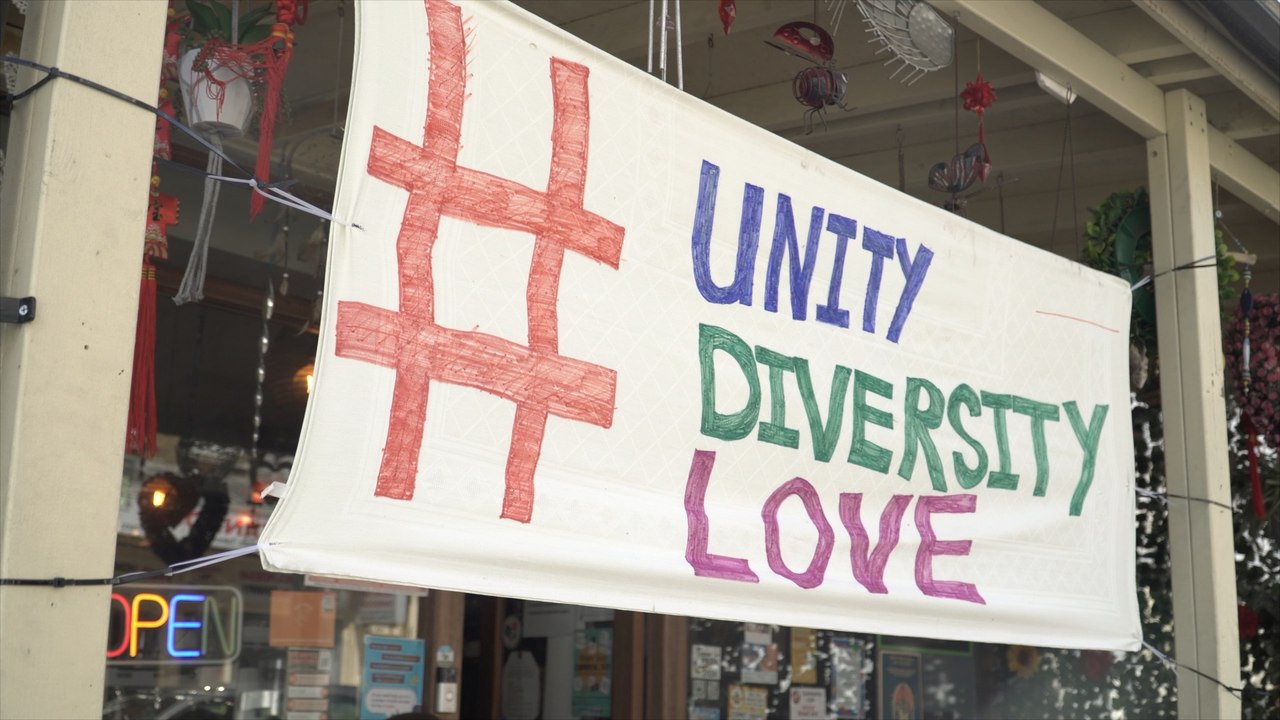 # UNITY
DIVERSITY
LOVE
OPEN